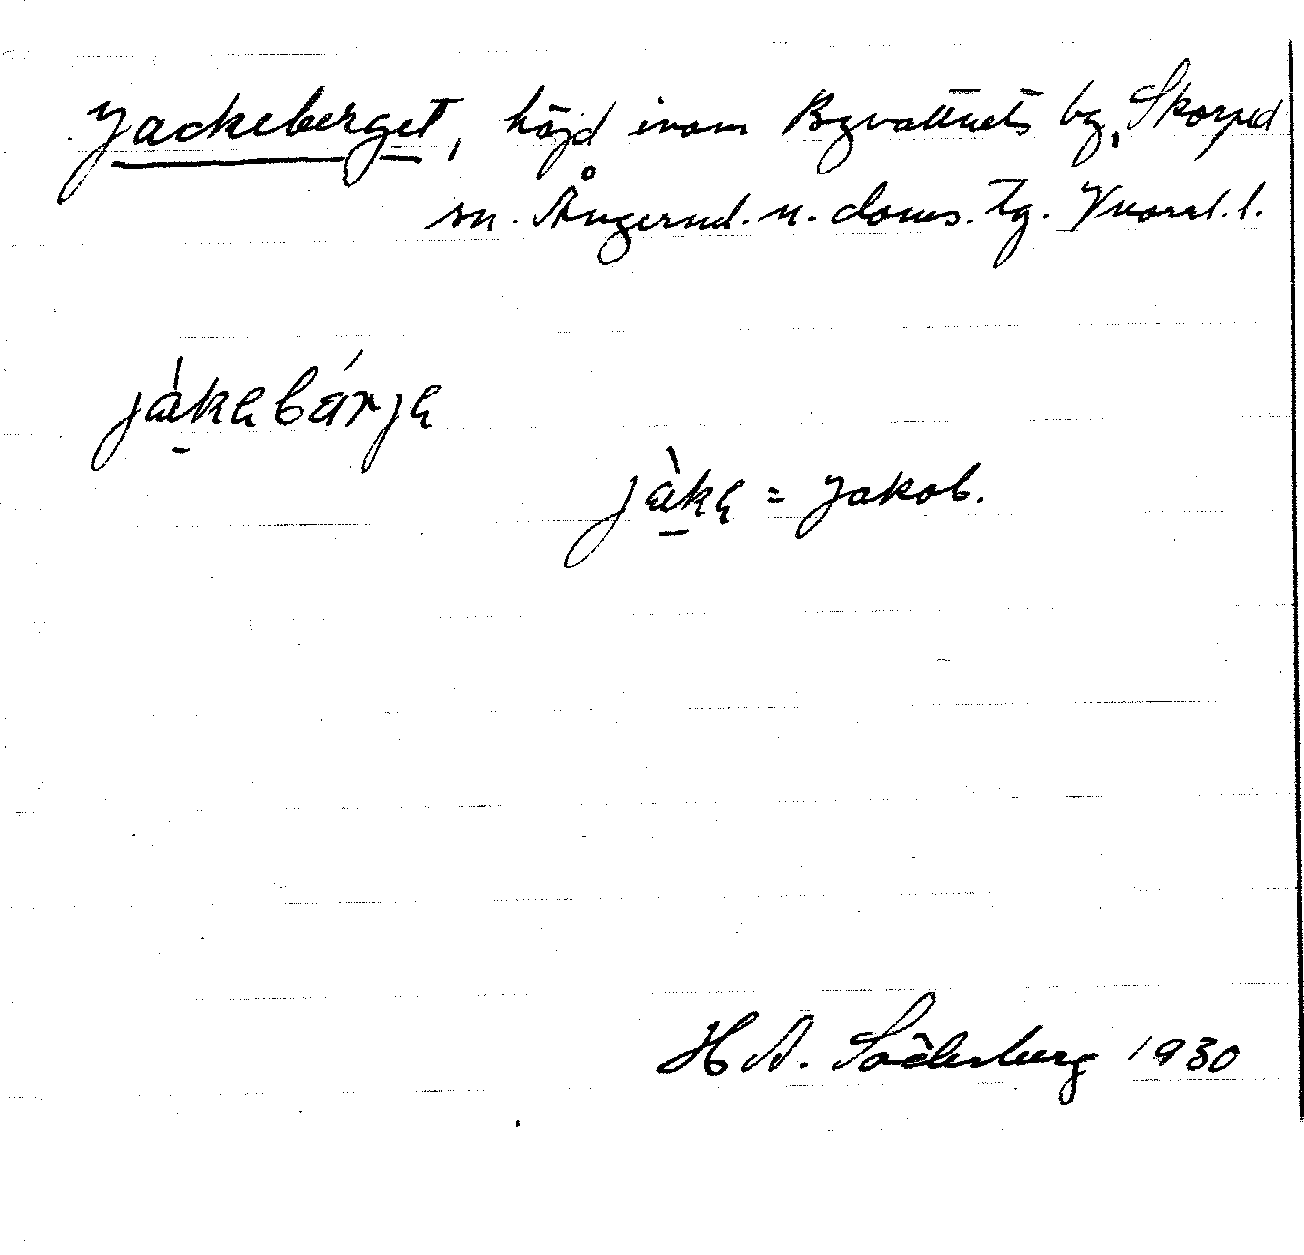 Jackeberget, höjd inom Byvattnets by, Skorped
sn. Ångerml. n. doms. tg. Vnorrl. l.
jàkebárje
jàkę = Jakob.
H A. Söderberg 1930